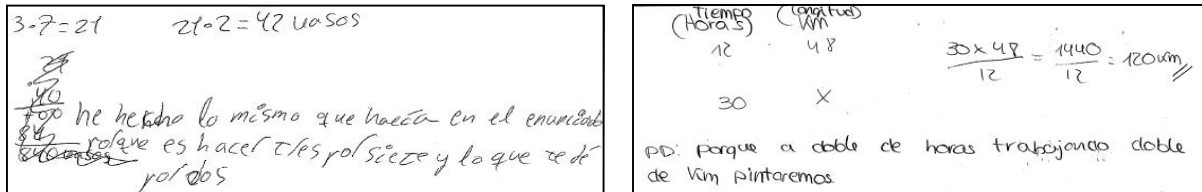 3·7=21 21·2=42 vasos
he hecho lo mismo que hacía en el enunciado
porque es hacer tres por siete y lo que te dé
por dos
Tiempo (Longitud)
(Horas) Km
12 48
30 x 48 / 12 = 1440 / 12 = 120 km //
30 X
PD: porque a doble de horas trabajando doble
de Km pintaremos